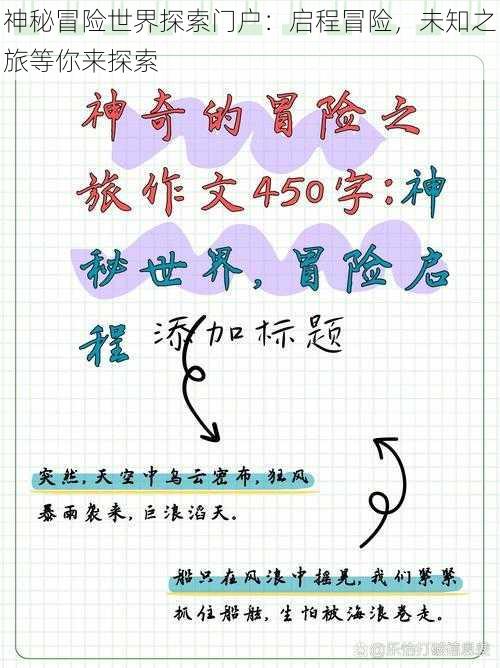 神秘冒险世界探索门户：启程冒险，未知之
旅等你来探索
神奇的冒险之
旅作文450字:神
秘世界,冒险启
程 添加标题
突然,天空中乌云密布,狂风
暴雨袭来,巨浪滔天。
船只在风浪中摇晃,我们紧紧
抓住船舷,生怕被海浪卷走。